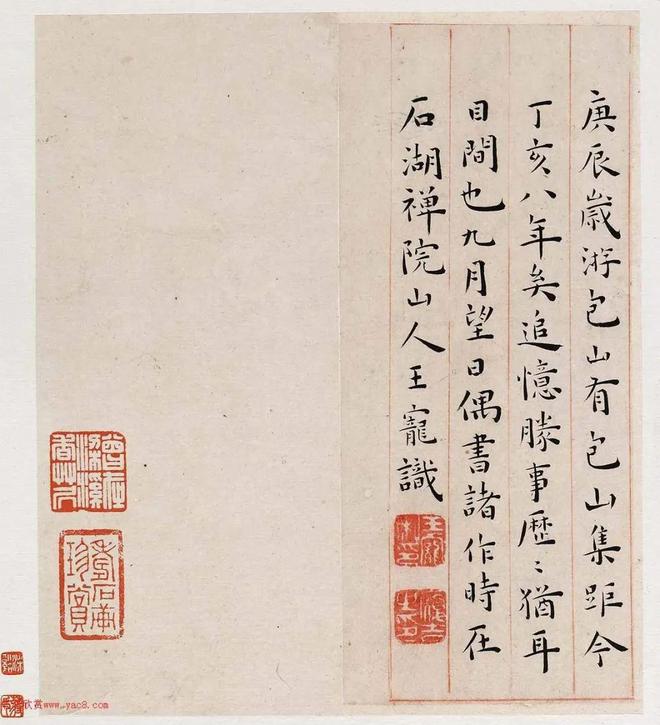 庚辰歲游包山有包山集距今
丁亥八年矣追憶勝事歴〻猶耳
目間也九月望日偶書諸作時在
石湖禪院山人王寵識
欣赏www.yac8.com